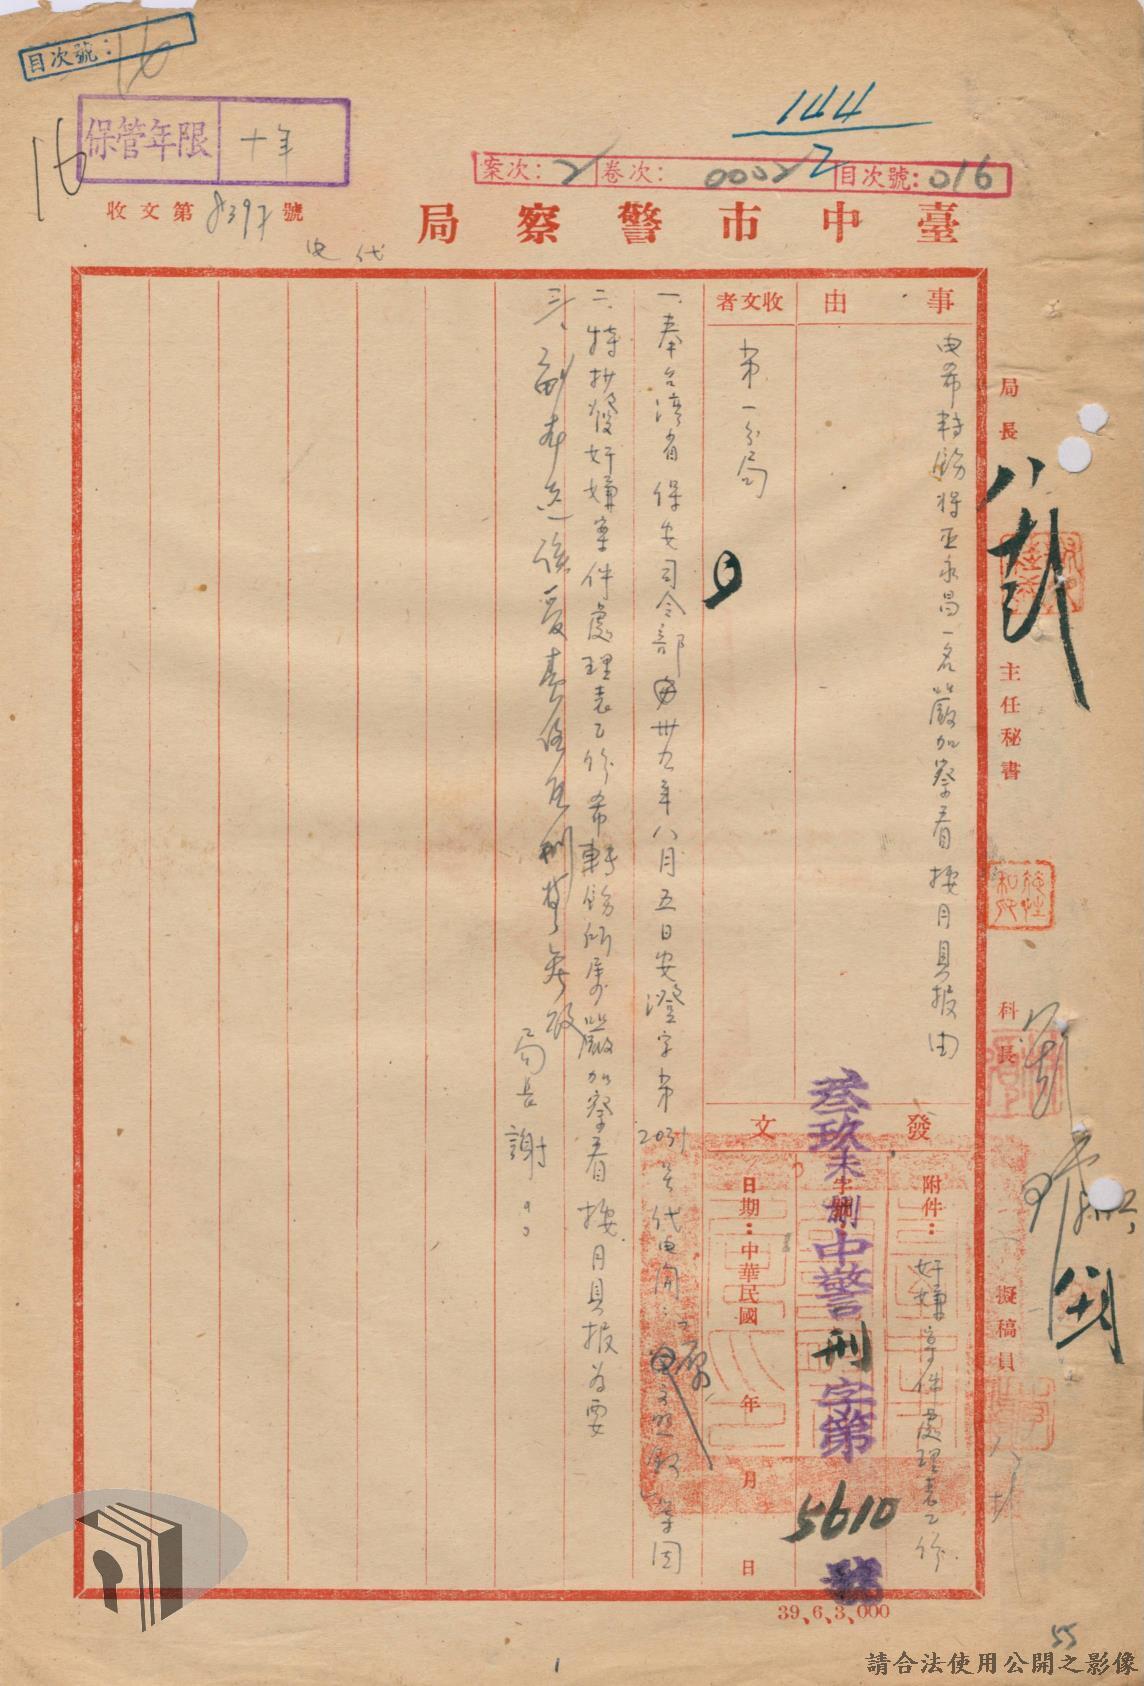 目次號：16
16
保管年限 十年
144
2
案次：2 卷次：00022 目次號：016
收文第8397號
代电
臺中市警察局
事由
电希轉飭將王永昌一名嚴加察看按月具报由
收文者
第一分局
發文
附件：奸嫌案件處理表乙份
字號
叁玖未刪中警刑字第5610號
日期：中華民國 年 月 日
一、奉台湾省保安司令部卅九年八月五日安澄字第2031号代电開：
二、特抄發奸嫌案件處理表乙份希轉飭所屬嚴加察看按月具报為要
三、副本
局長謝○○
局長
主任秘書
科長
擬稿員
39、6、3、000
55
1
請合法使用公開之影像